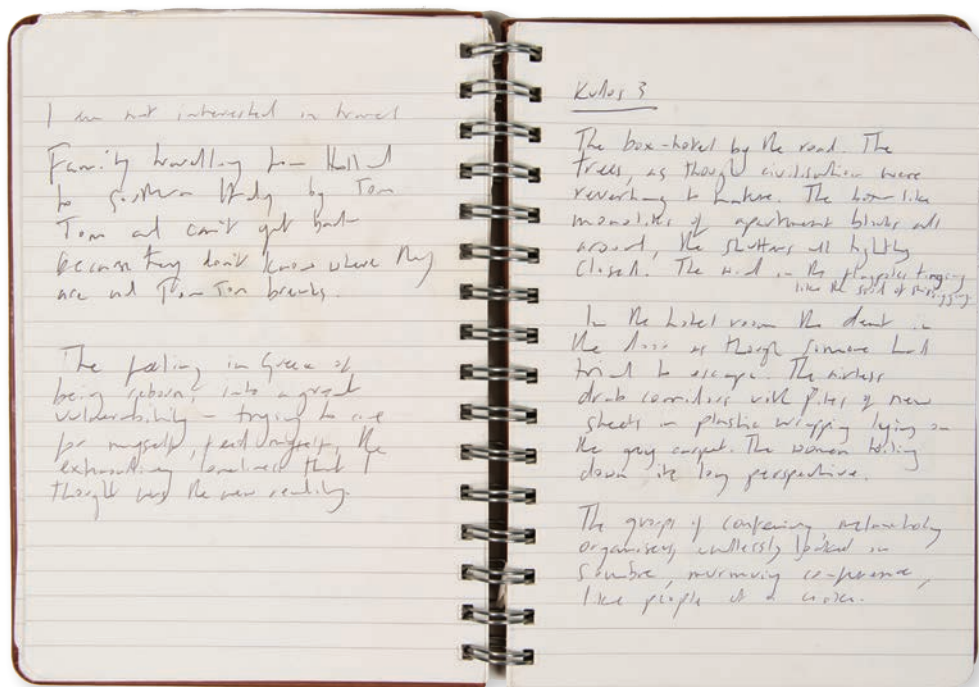 I am not interested in travel
Family travelling from Holland
to southern Italy by Tom
Tom and can't get back
because they don't know where they
are and Tom Tom breaks.
The feeling in Greece of
being reborn, into a great
vulnerability – trying to care
for myself, feed myself, the
extraordinary loneliness that I
thought was the new reality.
Kudos 3
The box-hotel by the road. The
trees, as though civilisation were
reverting to nature. The
monoliths of apartment blocks all
around, the shutters all tightly
closed. The wind in the flagpoles
like the sound of
In the hotel room the dent in
the door as though someone had
tried to escape. The airless
drab corridors with piles of new
sheets in plastic wrapping lying on
the grey carpet. The women toiling
down its long perspective.
The groups of conferring, melancholy
organisers, endlessly locked in
sombre, murmuring conference,
like people at a